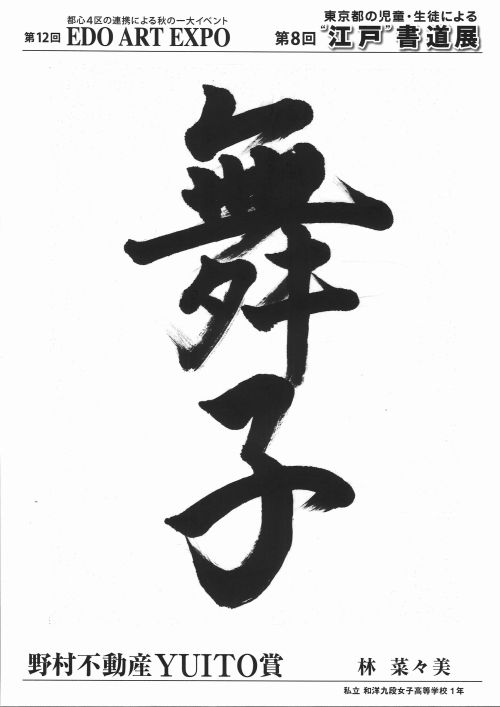 都心4区の連携による秋の一大イベント
第12回 EDO ART EXPO
東京都の児童・生徒による
第8回 “江戸”書道展
舞子
野村不動産YUITO賞
林 菜々美
私立 和洋九段女子高等学校1年